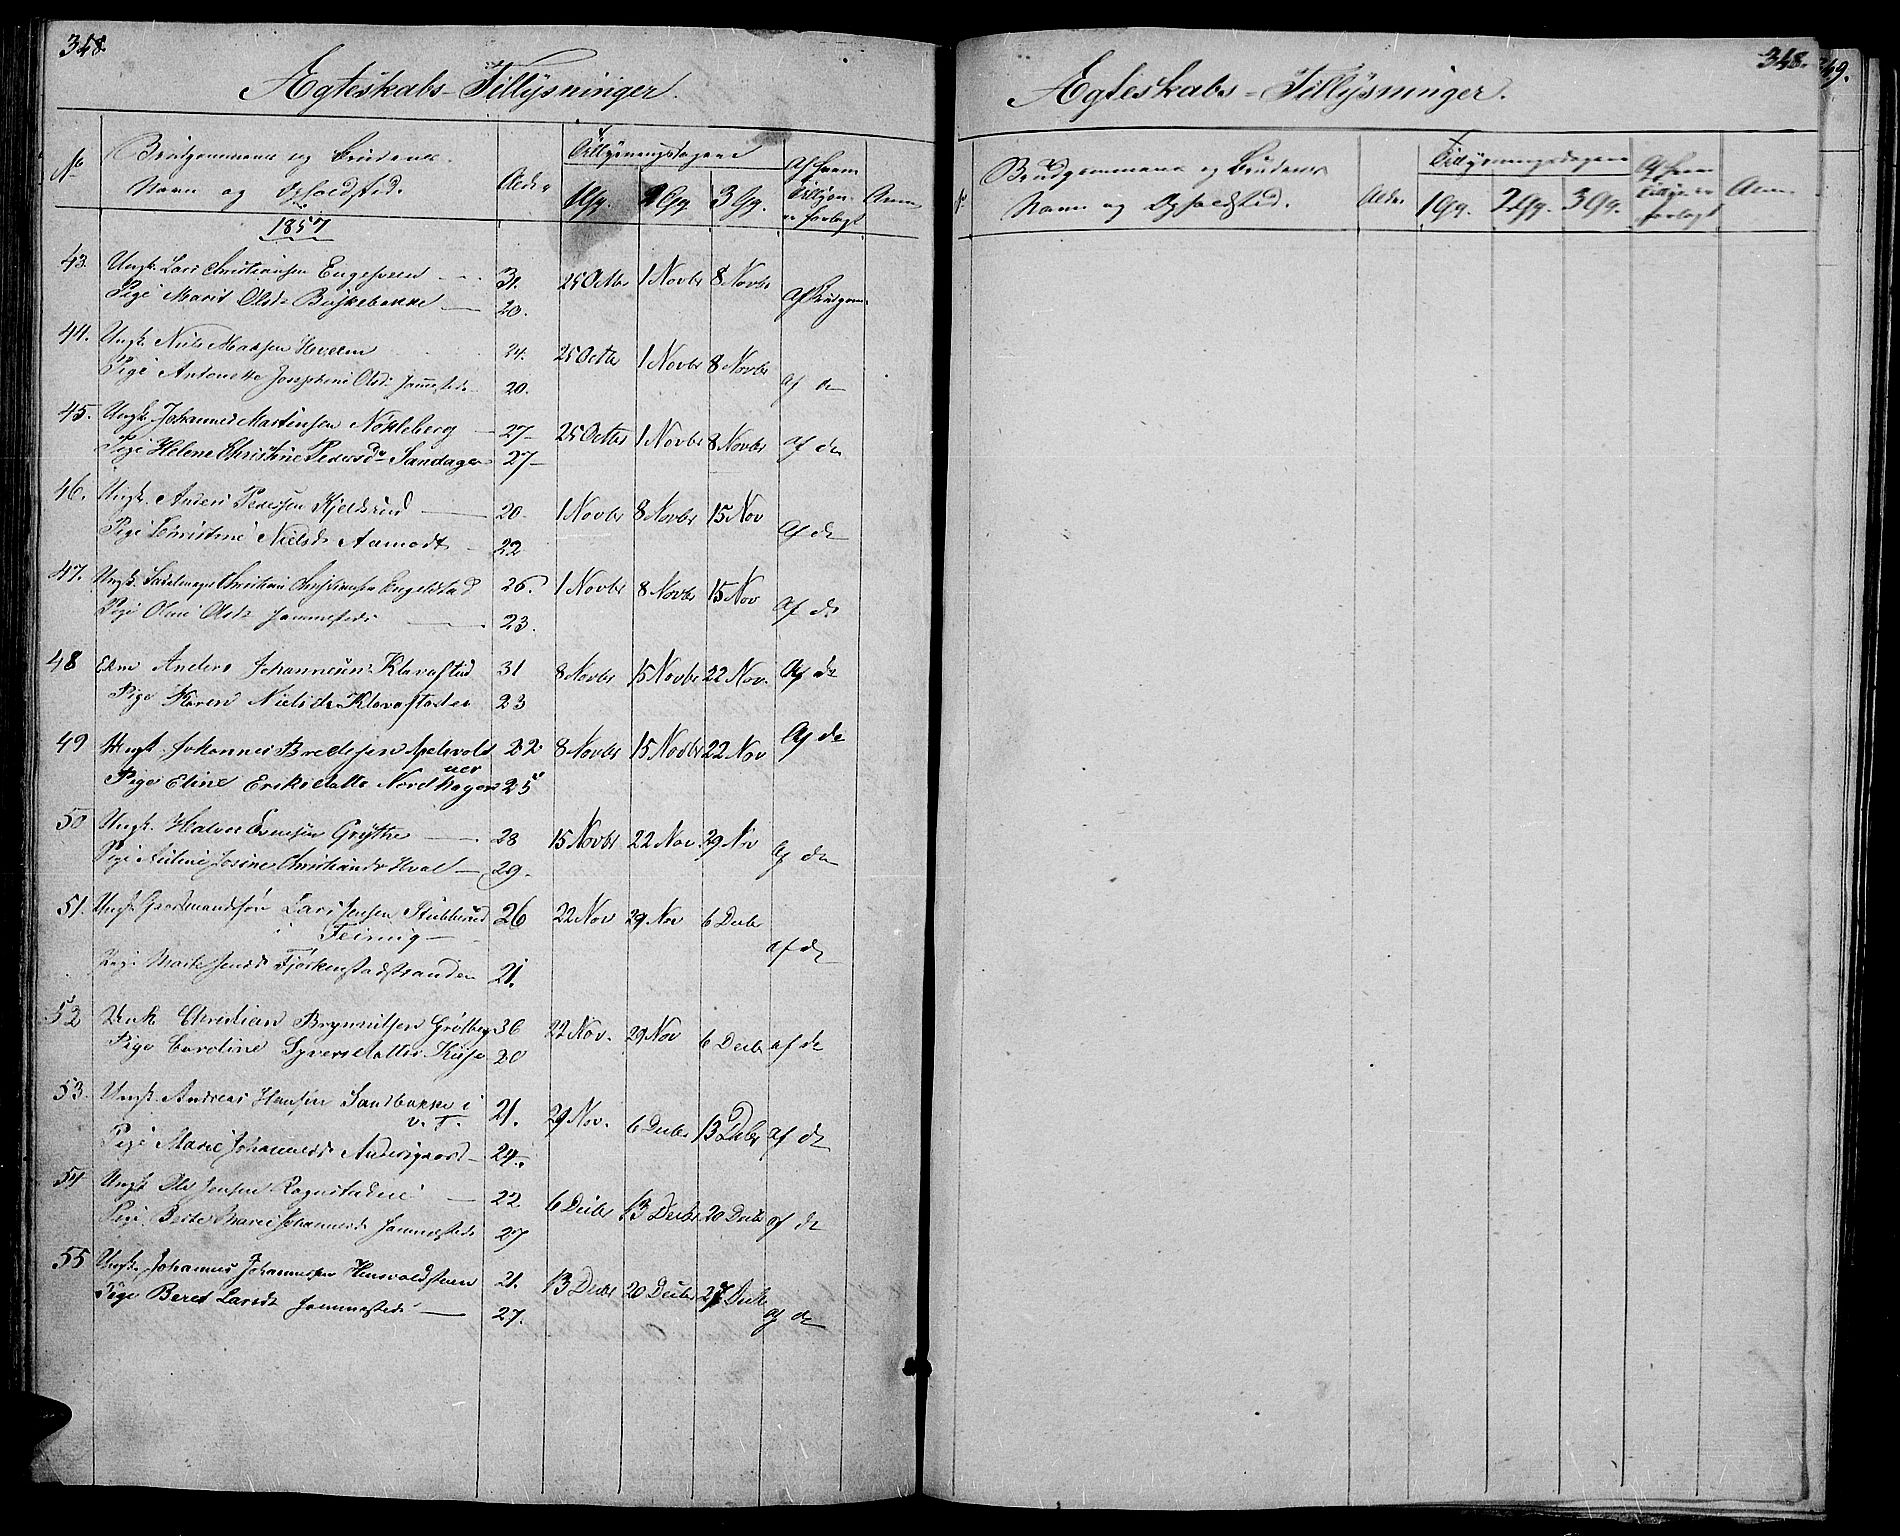 348.
Ægteskabs-Tillysninger.
No
Brudgommens og Brudens
Navn og Opholdsted.
Alder
Tillysningsdagene
1 Gg. 2 Gg. 3 Gg.
Af hvem
Tillysn:
er forlagt
Anm
1857
43. Ungk. Lars Christiansen 31. 25 Octbr 1 Novbr 8 Novbr
Pige Marit Olsdr 20. Af Brudgom
44. Ungk. Niels Madsen 24. 25 Octbr 1 Novbr 8 Novbr
Pige Antonette Josephine Olsdr Sammesteds 20. af do
45. Ungk. Johannes Martinsen Nøkleberg 27- 25 Octbr 1 Novbr 8 Novbr
Pige Helene Christine Pedersdr Sandager 27- af do
46. Ungk. Anders Pedersen Kjelsrud 20. 1 Novbr 8 Novbr 15 Nov
Pige Christine Nielsdr Aamodt 22 af do
47. Ungk. Christian Christiansen Engelstad 26. 1 Novbr 8 Novbr 15 Nov
Pige Oline Olsdr Sammesteds 23. af do
48 Anders Johannesen Klavestad 31 8 Novbr 15 Novbr 22 Nov. Af do
Pige Karen Nielsdr Klavestader 23
49 Ungk. Johannes Bredesen 22. 8 Novbr 15 Novbr 22 Nov Af do
Pige Eline Eriksdatter Nordhagen 25
50 Ungk. Halvor Evensen Grythe 28 15 Novbr 22 Nov. 29 Nov
Pige Josine Christiansdr Hval 29. af do
51. Ungk. Gaardmandssøn Lars Jensen Stubberud 26 22 Nov 29 Nov 6 Decbr
i Feiring
Pige Marte Jensdr 21. af do
52 Ungk Christian Brynnilsen 36 22 Nov. 29 Nov 6 Decbr af do
Pige Caroline Syversdatter 20
53. Ungk. Andreas Hansen Sandbakke i 21. 29 Nov. 6 Decbr 13 Decbr af do
v. T.
Pige Marie Johannesdr 24.
54 Ungk Ole Jensen 22 6 Decbr 13 Decbr 20 Decbr af do
Pige Berte Marie Johannesdr Sammesteds 27
55 Ungk. Johannes Johannesen 21. 13 Decbr 20 Decbr 27 Decbr
Pige Beret Larsdr Sammesteds 27. af do
348.
Ægteskabs-Tillysninger.
Brudgommens og Brudens
Navn og Opholdsted.
Alder
Tillysningsdagene
1 Gg. 2 Gg. 3 Gg.
Af hvem
Tillys er
forlagt
Anm.
49.